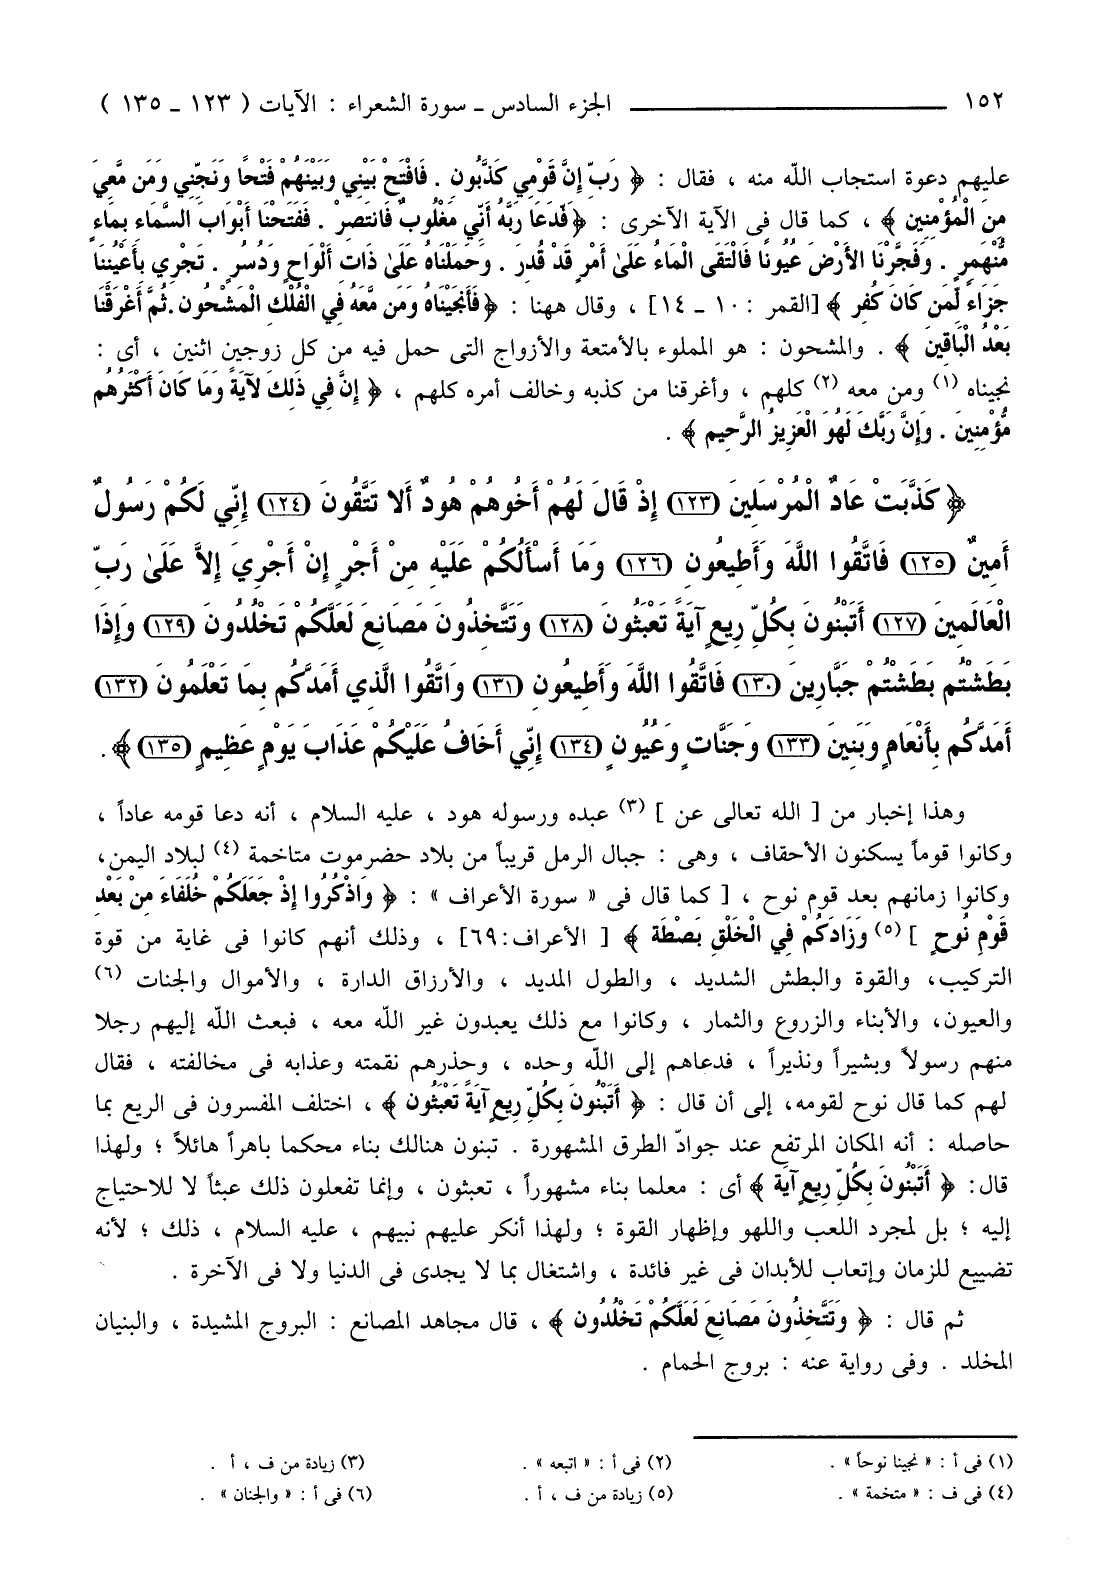 ١٥٢ ــــــــــــــــــــــ الجزء السادس ـ سورة الشعراء : الآيات ( ١٢٣ ـ ١٣٥ )
عليهم دعوة استجاب الله منه ، فقال : ﴿ رَبِّ إِنَّ قَوْمِي كَذَّبُونِ . فَافْتَحْ بَيْنِي وَبَيْنَهُمْ فَتْحًا وَنَجِّنِي وَمَن مَّعِيَ
مِنَ الْمُؤْمِنِين ﴾ ، كما قال فى الآية الأخرى : ﴿ فَدَعَا رَبَّهُ أَنِّي مَغْلُوبٌ فَانتَصِرْ . فَفَتَحْنَا أَبْوَابَ السَّمَاء بِمَاءٍ
مُّنْهَمِرٍ . وَفَجَّرْنَا الأَرْضَ عُيُونًا فَالْتَقَى الْمَاءُ عَلَى أَمْرٍ قَدْ قُدِرَ . وَحَمَلْنَاهُ عَلَى ذَاتِ أَلْوَاحٍ وَدُسُرٍ . تَجْرِي بِأَعْيُنِنَا
جَزَاءً لِّمَن كَانَ كُفِر ﴾ [القمر : ١٠ ـ ١٤] ، وقال ههنا : ﴿ فَأَنجَيْنَاهُ وَمَن مَّعَهُ فِي الْفُلْكِ الْمَشْحُون . ثُمَّ أَغْرَقْنَا
بَعْدُ الْبَاقِينَ ﴾ . والمشحون : هو المملوء بالأمتعة والأزواج التى حمل فيه من كل زوجين اثنين ، أى :
نجيناه (١) ومن معه (٢) كلهم ، وأغرقنا من كذبه وخالف أمره كلهم ، ﴿ إِنَّ فِي ذَلِكَ لآيَةً وَمَا كَانَ أَكْثَرُهُم
مُّؤْمِنِينَ . وَإِنَّ رَبَّكَ لَهُوَ الْعَزِيزُ الرَّحِيم ﴾ .
﴿ كَذَّبَتْ عَادٌ الْمُرْسَلِينَ (١٢٣) إِذْ قَالَ لَهُمْ أَخُوهُمْ هُودٌ أَلا تَتَّقُونَ (١٢٤) إِنِّي لَكُمْ رَسُولٌ
أَمِينٌ (١٢٥) فَاتَّقُوا اللَّهَ وَأَطِيعُونِ (١٢٦) وَمَا أَسْأَلُكُمْ عَلَيْهِ مِنْ أَجْرٍ إِنْ أَجْرِيَ إِلاَّ عَلَىٰ رَبِّ
الْعَالَمِينَ (١٢٧) أَتَبْنُونَ بِكُلِّ رِيعٍ آيَةً تَعْبَثُونَ (١٢٨) وَتَتَّخِذُونَ مَصَانِعَ لَعَلَّكُمْ تَخْلُدُونَ (١٢٩) وَإِذَا
بَطَشْتُم بَطَشْتُمْ جَبَّارِينَ (١٣٠) فَاتَّقُوا اللَّهَ وَأَطِيعُونِ (١٣١) وَاتَّقُوا الَّذِي أَمَدَّكُم بِمَا تَعْلَمُونَ (١٣٢)
أَمَدَّكُم بِأَنْعَامٍ وَبَنِينَ (١٣٣) وَجَنَّاتٍ وَعُيُونٍ (١٣٤) إِنِّي أَخَافُ عَلَيْكُمْ عَذَابَ يَوْمٍ عَظِيمٍ (١٣٥) ﴾ .
وهذا إخبار من [ الله تعالى عن ] (٣) عبده ورسوله هود ، عليه السلام ، أنه دعا قومه عاداً ،
وكانوا قوماً يسكنون الأحقاف ، وهى : جبال الرمل قريباً من بلاد حضرموت متاخمة (٤) لبلاد اليمن،
وكانوا زمانهم بعد قوم نوح ، [ كما قال فى « سورة الأعراف » : ﴿ وَاذْكُرُوا إِذْ جَعَلَكُمْ خُلَفَاءَ مِنْ بَعْدِ
قَوْمِ نُوحٍ ] (٥) وَزَادَكُمْ فِي الْخَلْقِ بَصْطَة ﴾ [ الأعراف:٦٩] ، وذلك أنهم كانوا فى غاية من قوة
التركيب، والقوة والبطش الشديد ، والطول المديد ، والأرزاق الدارة ، والأموال والجنات (٦)
والعيون، والأبناء والزروع والثمار ، وكانوا مع ذلك يعبدون غير الله معه ، فبعث الله إليهم رجلا
منهم رسولاً وبشيراً ونذيراً ، فدعاهم إلى الله وحده ، وحذرهم نقمته وعذابه فى مخالفته ، فقال
لهم كما قال نوح لقومه، إلى أن قال : ﴿ أَتَبْنُونَ بِكُلِّ رِيعٍ آيَةً تَعْبَثُون ﴾ ، اختلف المفسرون فى الريع بما
حاصله : أنه المكان المرتفع عند جوادّ الطرق المشهورة . تبنون هنالك بناء محكما باهراً هائلاً ؛ ولهذا
قال: ﴿ أَتَبْنُونَ بِكُلِّ رِيعٍ آيَة ﴾ أى : معلما بناء مشهوراً ، تعبثون ، وإنما تفعلون ذلك عبثاً لا للاحتياج
إليه ؛ بل لمجرد اللعب واللهو وإظهار القوة ؛ ولهذا أنكر عليهم نبيهم ، عليه السلام ، ذلك ؛ لأنه
تضييع للزمان وإتعاب للأبدان فى غير فائدة ، واشتغال بما لا يجدى فى الدنيا ولا فى الآخرة .
ثم قال : ﴿ وَتَتَّخِذُونَ مَصَانِعَ لَعَلَّكُمْ تَخْلُدُون ﴾ ، قال مجاهد المصانع : البروج المشيدة ، والبنيان
المخلد . وفى رواية عنه : بروج الحمام .
(١) فى أ : « نجينا نوحاً» . (٢) فى أ : « اتبعه » . (٣) زيادة من ف ، أ .
(٤) فى ف : « متخمة » . (٥) زيادة من ف ، أ . (٦) فى أ : « والجنان » .